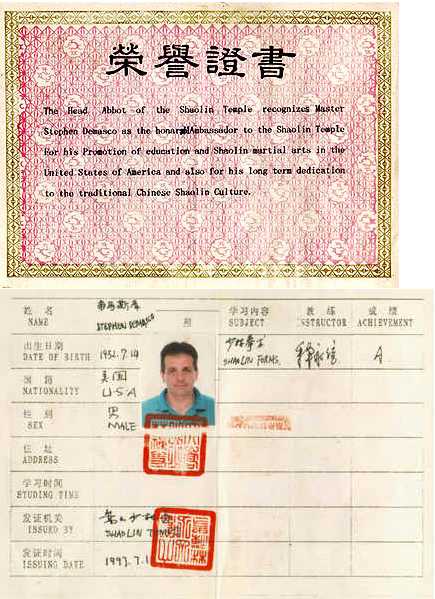 榮譽證書
The Head Abbot of the Shaolin Temple recognizes Master
Stephen Demasco as the honary Ambassador to the Shaolin Temple
For his Promotion of education and Shaolin martial arts in the
United States of America and also for his long term dedication
to the traditional Chinese Shaolin Culture.
姓 名
NAME
STEPHEN DEMASCO
照
学习内容
SUBJECT
教 练
INSTRUCTOR
成 绩
ACHIEVEMENT
出生日期
DATE OF BIRTH
1952.7.14
少林拳
SHAOLIN FORMS
A
国 籍
NATIONALITY
美国
U.S.A
性 别
SEX
男
MALE
住 址
ADDRESS
学习时间
STUDING TIME
发证机关
ISSUED BY
SHAOLIN TEMPLE
发证时间
ISSUING DATE
1997.7.1